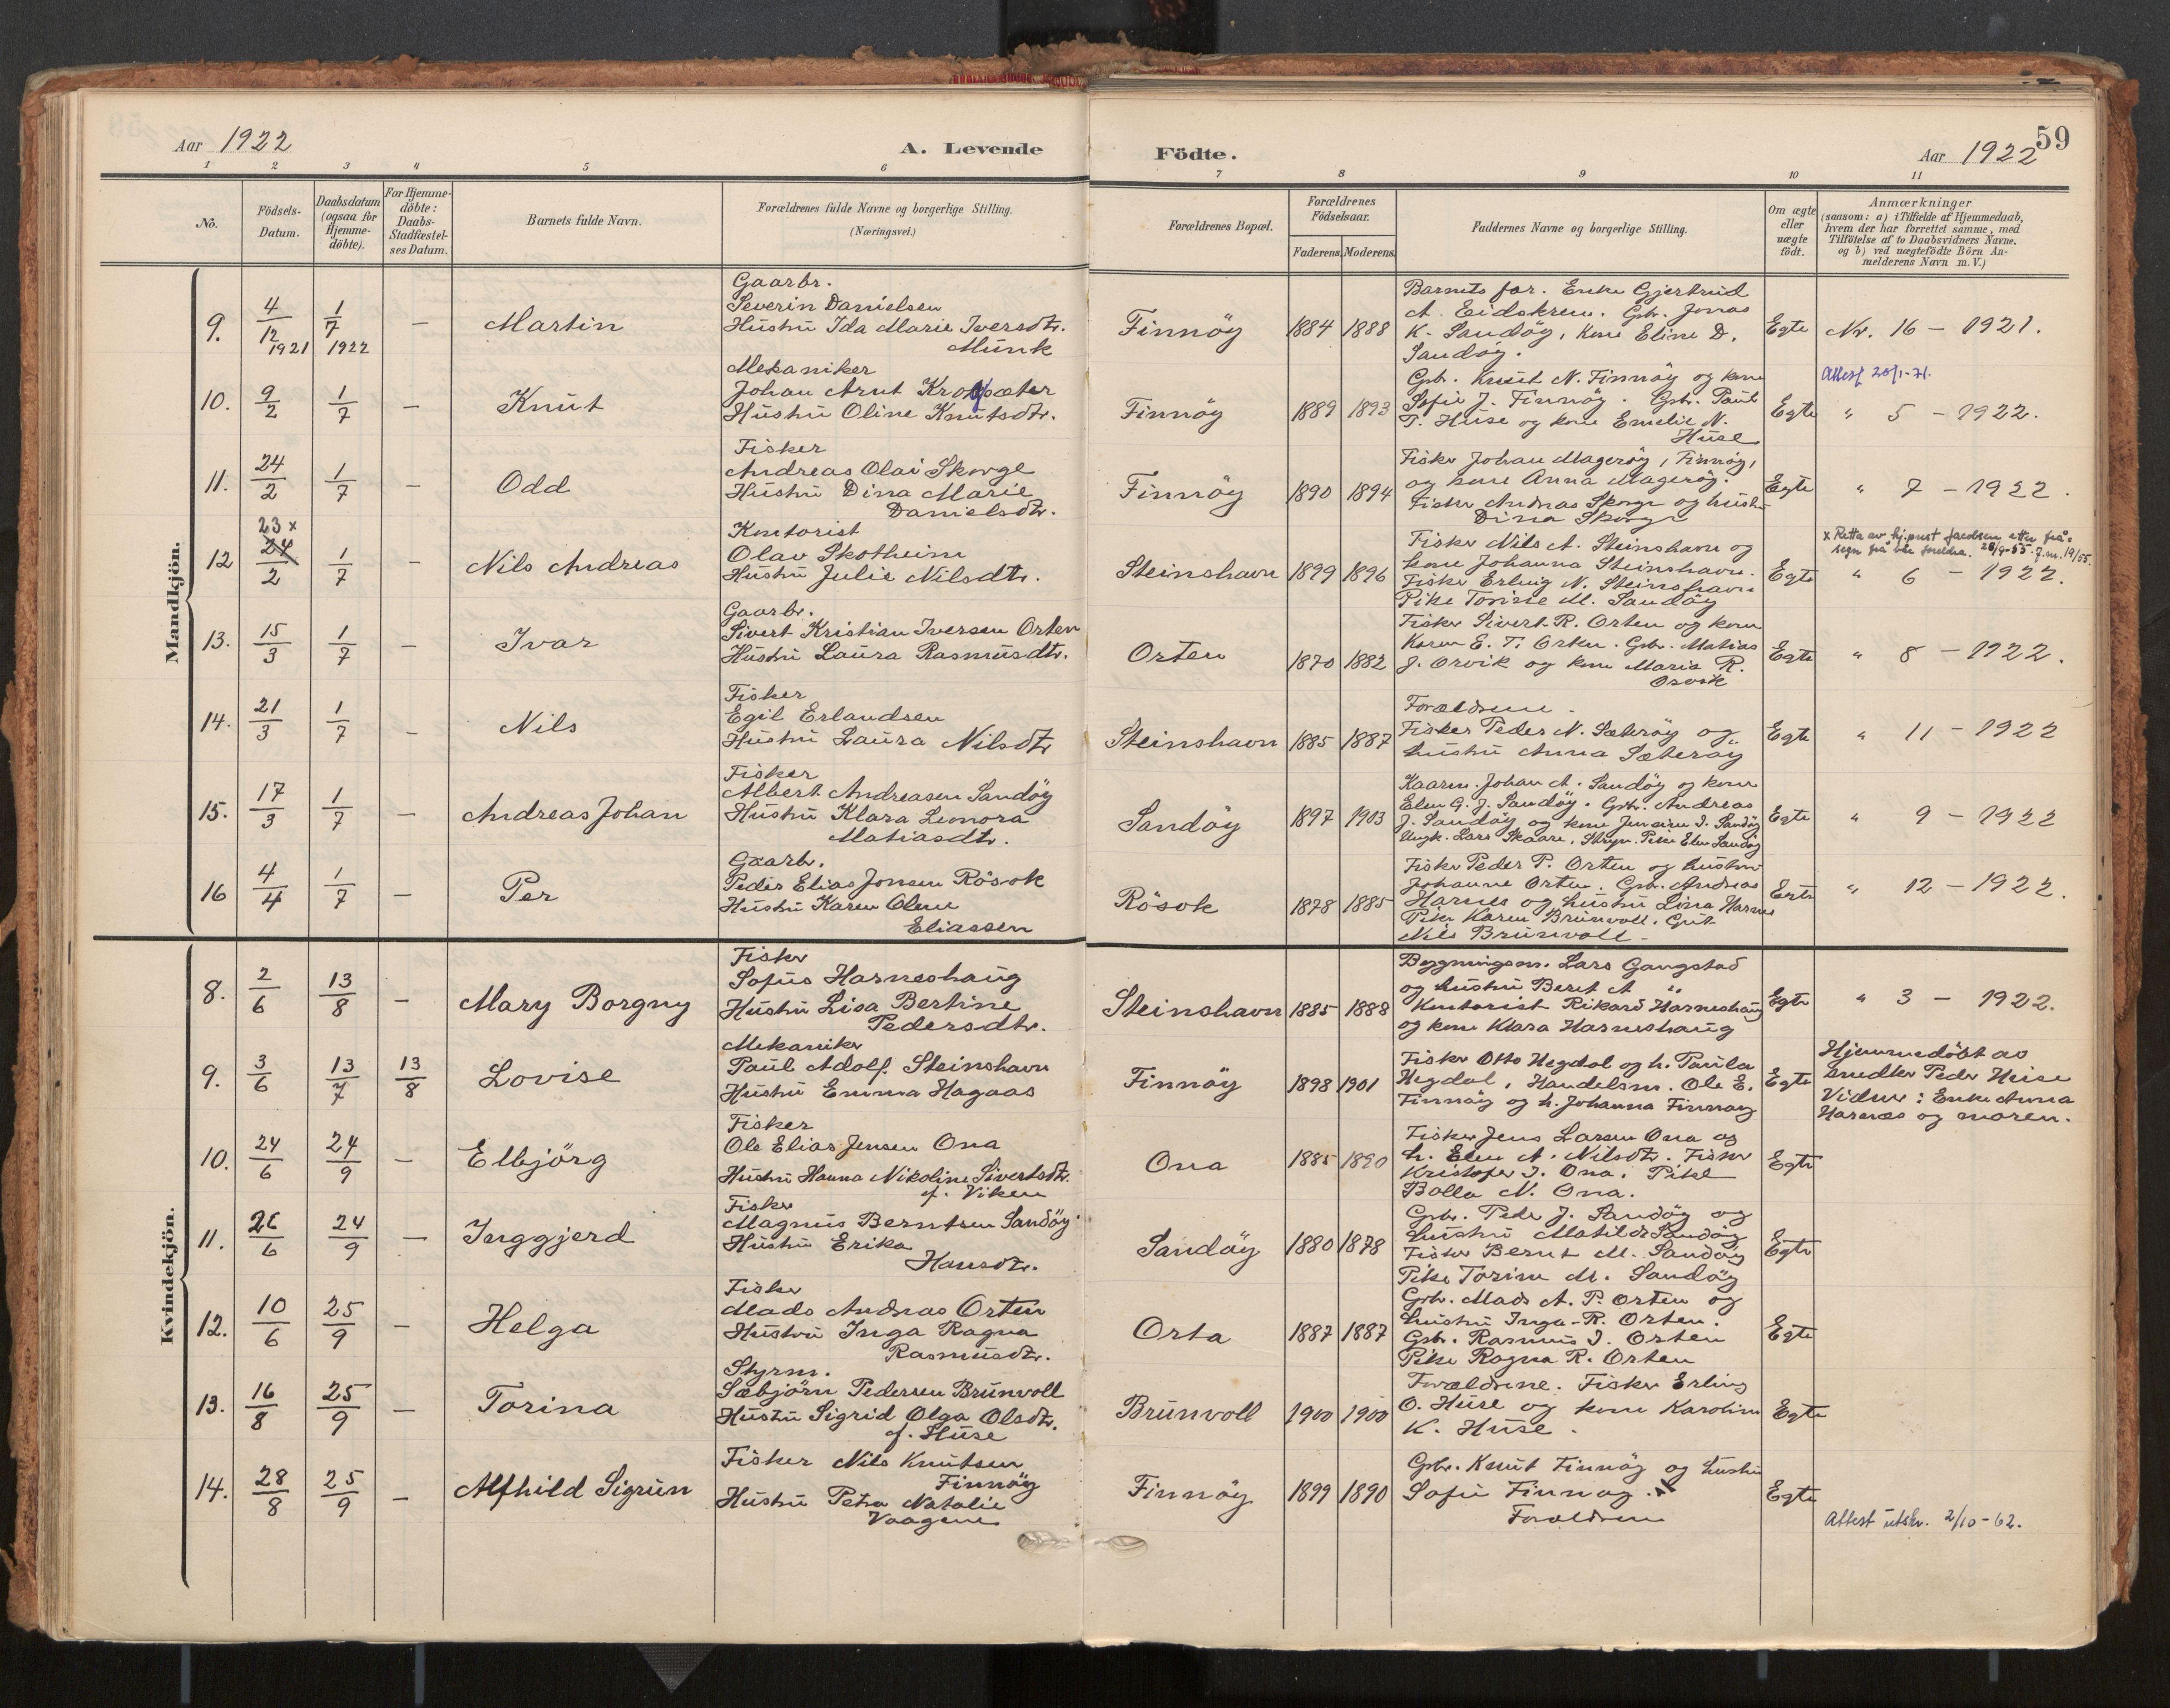 Aar 1922
A. Levende
Födte.
59
Aar 1922
1 2 3 4 5 6 7 8 9 10 11
No.
Födsels-Datum.
Daabsdatum (ogsaa for Hjemme-döbte).
For Hjemme-döbte: Daabs-Stadfæstel-ses Datum.
Barnets fulde Navn.
Forældrenes fulde Navne og borgerlige Stilling.
(Næringsvei.)
Forældrenes Bopæl.
Forældrenes Födselsaar.
Faderens. Moderens.
Faddernes Navne og borgerlige Stilling.
Om ægte eller uægte födt.
Anmærkninger
(saasom: a) i Tilfælde af Hjemmedaab,
hvem der har forrettet samme, med
Tilföielse af to Daabsvidners Navne,
og b) ved uægtefödte Börn An-
melderens Navn m.V.)
Mandkjön.
9. 4/12 1921 1/7 1922 — Martin
Gaarbr.
Severin Danielsen
Hustru Ida Marie Iversdtr.
Munk
Finnöy 1884 1888
Barnets far. Enke Gjertrud
A. Eidskrem. Gbr. Jonas
K. Sandöy, kone Eline D.
Sandöy.
Egte Nr. 16 - 1921.
10. 9/2 1/7 — Knut
Mekaniker
Johan Arnt Krogsæter
Hustru Oline Knutsdtr.
Finnöy 1889 1893
Gbr. Knut N. Finnöy og kone
Sofie J. Finnöy. Gbr. Paul
P. Huse og kone Emelie N.
Huse
Egte
Attest 28/1-71.
" 5 - 1922.
11. 24/2 1/7 — Odd
Fisker
Andreas Olai Skorge
Hustru Dina Marie
Danielsdtr.
Finnöy 1890 1894
Fisker Johan Mageröy, Finnöy,
og kone Anna Mageröy.
Fisker Andreas Skorge og hustru
Dina Skorge
Egte " 7 - 1922.
12 23 x 24/2 1/7 — Nils Andreas
Kontorist
Olav Skotheim
Hustru Julie Nilsdtr.
Steinshavn 1899 1896
Fisker Nils A. Steinshavn og
kone Johanna Steinshavn.
Fisker Erling N. Steinshavn
Pike Torine M. Sandöy
Egte
x Retta av hj.prest Jacobsen etter frå-
segn frå båe foreldra. 28/9-55. J.nr. 19/55.
" 6 - 1922.
13. 15/3 1/7 — Ivar
Gaarbr.
Sivert Kristian Iversen Orten
Hustru Laura Rasmusdtr.
Orten 1870 1882
Fisker Sivert R. Orten og kone
Karen E. T. Orten. Gbr. Matias
J. Orvik og kone Maria R.
Orvik
Egte " 8 - 1922.
14. 21/3 1/7 — Nils
Fisker
Egil Erlandsen
Hustru Laura Nilsdtr
Steinshavn 1885 1887
Forældrene.
Fisker Peder N. Sæteröy og
hustru Anna Sæteröy
Egte " 11 - 1922
15. 17/3 1/7 — Andreas Johan
Fisker
Albert Andreasen Sandöy
Hustru Klara Leonora
Matiasdtr.
Sandöy 1897 1903
Kaarm. Johan A. Sandöy og kone
Elen G. J. Sandöy. Gbr. Andreas
J. Sandöy og kone Jensine I. Sandöy
Ungk. Lars Skaare, Stryn. Pike Elen Sandöy
Egte " 9 - 1922
16 4/4 1/7 — Per
Gaarbr.
Peder Elias Jonsen Rösok
Hustru Karen Olene
Eliassen
Rösok 1878 1885
Fisker Peder P. Orten og hustru
Johanne Orten. Gbr. Andreas
Harnes og hustru Lina Harnes
Pike Karen Brunvoll. Gut
Nils Brunvoll.
Egte " 12 - 1922.
Kvindekjön.
8. 2/6 13/8 — Mary Borgny
Fisker
Sofus Harneshaug
Hustru Lisa Bertine
Pedersdtr.
Steinshavn 1885 1888
Bygningsm. Lars Gangstad
og hustru Beret A "
Kontorist Rikard Harneshaug
og kone Klara Harneshaug
Egte " 3 - 1922.
9. 3/6 13/7 13/8 Lovise
Mekaniker
Paul Adolf Steinshavn
Hustru Emma Hagaas
Finnöy 1898 1901
Fisker Otto Hegdal og h. Paula
Hegdal, Handelsm. Ole E.
Finnöy og h. Johanna Finnöy
Egte
Hjemmedöbt av
snedker Peder Heise
Vidner: Enke Anna
Harnæs og moren.
10. 24/6 24/9 — Elbjörg
Fisker
Ole Elias Jensen Ona
Hustru Hanna Nikoline Sivertsdtr.
f. Viken
Ona 1885 1890
Fisker Jens Larsen Ona og
h. Elen A. Nilsdtr. Fisker
Kristofer J. Ona. Pike
Bolla N. Ona.
Egte
11. 26/6 24/9 — Inggjerd
Fisker
Magnus Berntsen Sandöy
Hustru Erika
Hansdtr.
Sandöy 1880 1878
Gbr. Peder J. Sandöy og
hustru Matilde Sandöy
Fisker Bernt M. Sandöy
Pike Torine M. Sandöy
Egte
12. 10/6 25/9 — Helga
Fisker
Mads Andreas Orten
Hustru Inga Ragna
Rasmusdtr.
Orta 1887 1887
Gbr. Mads A. P. Orten og
hustru Inga R. Orten.
Gbr. Rasmus I. Orten
Pike Ragna R. Orten
Egte
13. 16/8 25/9 — Torina
Styrm.
Sæbjörn Pedersen Brunvoll
Hustru Sigrid Olga Olsdtr.
f. Huse
Brunvoll 1900 1900
Forældrene. Fisker Erling
O. Huse og kone Karoline
K. Huse.
Egte
14. 28/8 25/9 — Alfhild Sigrun
Fisker Nils Knutsen
Finnöy
Hustru Petra Natalie
Vaagenes
Finnöy 1899 1890
Gbr. Knut Finnöy og hustru
Sofie Finnöy.
Forældrene
Egte
Attest utskr. 2/10-62.